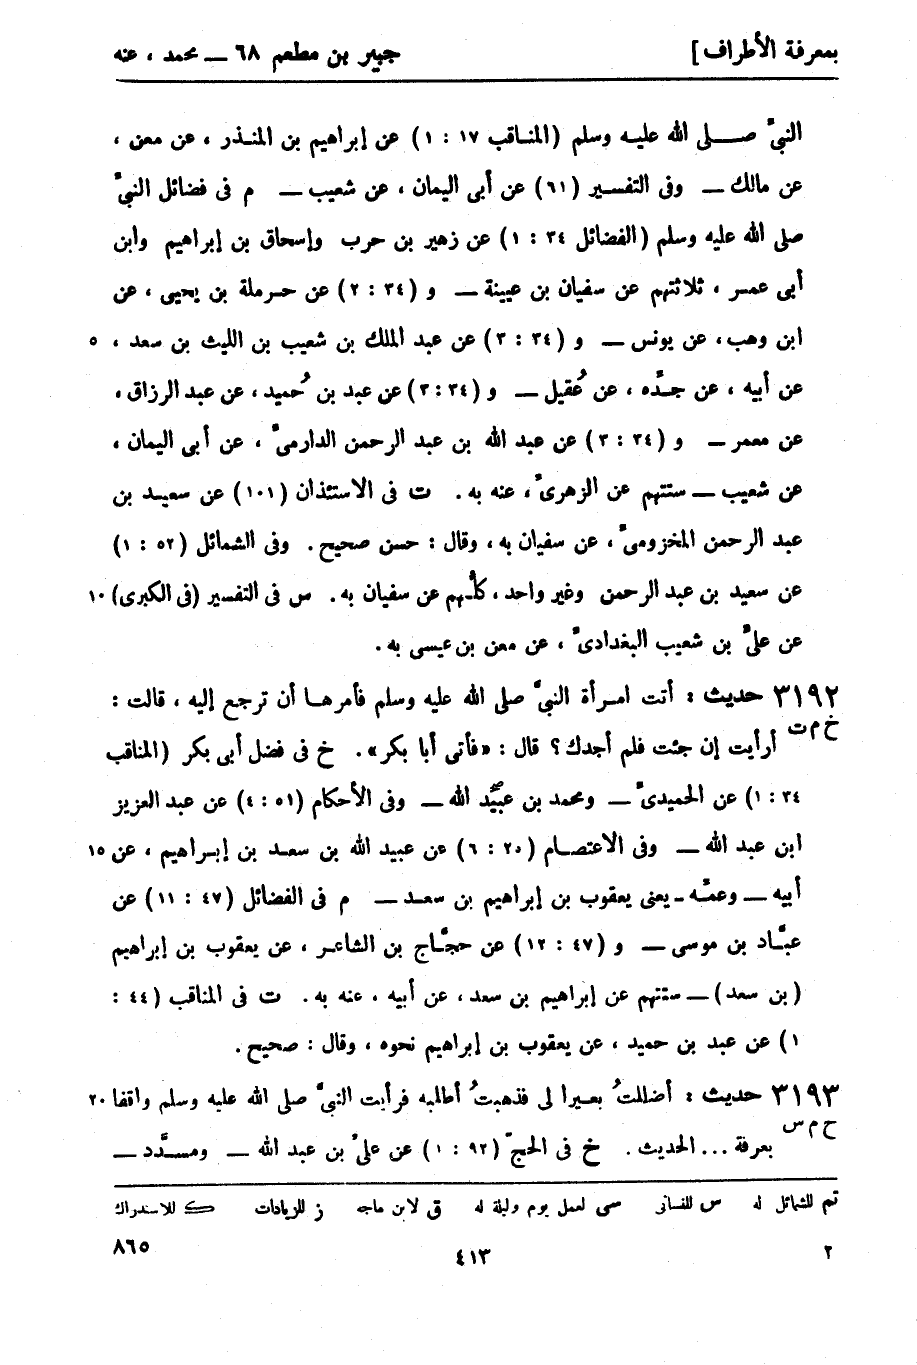 بمعرفة الأطراف] جبير بن مطعم ٦٨ ــ محمد ، عنه
النبيّ صلى الله عليه وسلم (المناقب ١٧ : ١) عن إبراهيم بن المنذر ، عن معن ،
عن مالك ــ وفى التفسير (٦١) عن أبى اليمان ، عن شعيب ــ م فى فضائل النبيّ
صلى الله عليه وسلم (الفضائل ٣٤ : ١) عن زهير بن حرب وإسحاق بن إبراهيم وابن
أبى عمر ، ثلاثتهم عن سفيان بن عيينة ــ و (٣٤ : ٢) عن حرملة بن يحيى ، عن
ابن وهب، عن يونس ــ و (٣٤ : ٣) عن عبد الملك بن شعيب بن الليث بن سعد ، ٥
عن أبيه ، عن جدّه ، عن عُقيل ــ و (٣٤ : ٣) عن عبد بن حُميد ، عن عبد الرزاق ،
عن معمر ــ و (٣٤ : ٣) عن عبد الله بن عبد الرحمن الدارمىّ ، عن أبى اليمان ،
عن شعيب ــ ستتهم عن الزهرىّ ، عنه به . ت فى الاستئذان (١٠١) عن سعيد بن
عبد الرحمن المخزومىّ ، عن سفيان به ، وقال : حسن صحيح . وفى الشمائل (٥٢ : ١)
عن سعيد بن عبد الرحمن وغير واحد ، كلّهم عن سفيان به . س فى التفسير (فى الكبرى) ١٠
عن علىّ بن شعيب البغدادىّ ، عن معن بن عيسى به .
٣١٩٢ حديث : أتت امرأة النبيّ صلى الله عليه وسلم فأمرها أن ترجع إليه ، قالت :
خ م ت أرأيت إن جئت فلم أجدك ؟ قال : «فأتى أبا بكر» . خ فى فضل أبى بكر (المناقب
٣٤ : ١) عن الحميدىّ ــ ومحمد بن عبيد الله ــ وفى الأحكام (٥١ : ٤) عن عبد العزيز
ابن عبد الله ــ وفى الاعتصام (٢٥ : ٦) عن عبيد الله بن سعد بن إبراهيم ، عن ١٥
أبيه ــ وعمّه ـ يعنى يعقوب بن إبراهيم بن سعد ــ م فى الفضائل (٤٧ : ١١) عن
عبّاد بن موسى ــ و (٤٧ : ١٢) عن حجّاج بن الشاعر ، عن يعقوب بن إبراهيم
(بن سعد) ــ ستتهم عن إبراهيم بن سعد ، عن أبيه ، عنه به . ت فى المناقب (٤٤ :
١) عن عبد بن حميد ، عن يعقوب بن إبراهيم نحوه ، وقال : صحيح .
٣١٩٣ حديث : أضللتُ بعيرا لى فذهبتُ أطلبه فرأيت النبيّ صلى الله عليه وسلم واقفا ٢٠
خ م س بعرفة ... الحديث . خ فى الحجّ (٩٢ : ١) عن علىّ بن عبد الله ــ ومسدّد ــ
تم للشمائل له س للنسائى سى لعمل يوم وليلة له ق لابن ماجه ز للزيادات ك للاستدراك
٢ ٤١٣ ٨٦٥